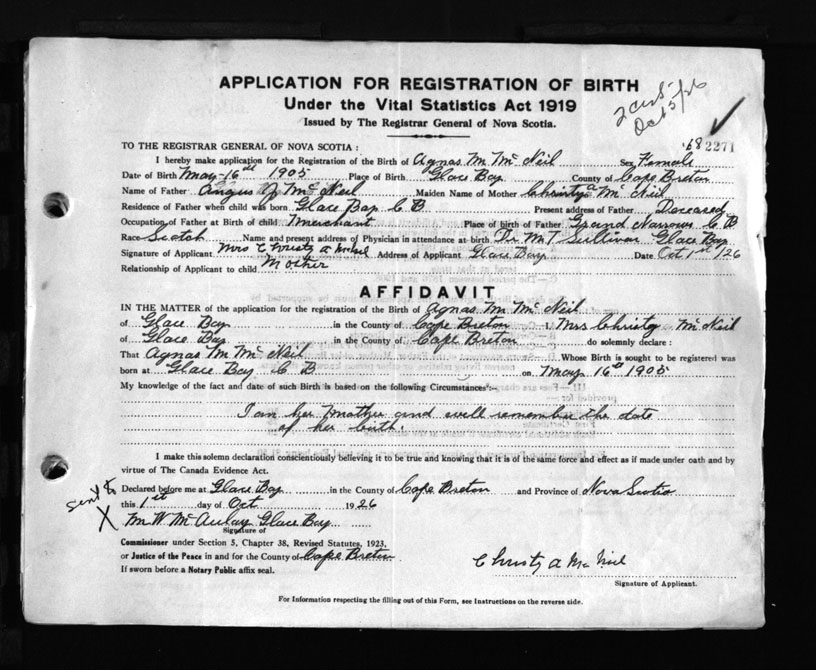 APPLICATION FOR REGISTRATION OF BIRTH
Under the Vital Statistics Act 1919
Issued by The Registrar General of Nova Scotia.
Oct 5/26
'68 2271
TO THE REGISTRAR GENERAL OF NOVA SCOTIA:
I hereby make application for the Registration of the Birth of Agnas M Mc Neil Sex Female
Date of Birth May 16th 1905 Place of Birth Glace Bay County of Cape Breton
Name of Father Angus J Mc Neil Maiden Name of Mother Christy a Mc Neil
Residence of Father when child was born Glace Bay C B Present address of Father Deceased
Occupation of Father at Birth of child Merchant Place of birth of Father Grand Narrows C B
Race Scotch Name and present address of Physician in attendance at birth Dr M T Sullivan Glace Bay
Signature of Applicant Mrs Christy a McNeil Address of Applicant Glace Bay Date Oct 1st /26
Relationship of Applicant to child Mother
AFFIDAVIT
IN THE MATTER of the application for the registration of the Birth of Agnas M Mc Neil
of Glace Bay in the County of Cape Breton I, Mrs Christy Mc Neil
of Glace Bay in the County of Cape Breton do solemnly declare:
That Agnas M Mc Neil Whose Birth is sought to be registered was
born at Glace Bay C B on May 16th 1905
My knowledge of the fact and date of such Birth is based on the following Circumstances:—
I am her mother and well remember the date
of her birth.
I make this solemn declaration conscientiously believing it to be true and knowing that it is of the same force and effect as if made under oath and by
virtue of The Canada Evidence Act.
Sent to X
Declared before me at Glace Bay in the County of Cape Breton and Province of Nova Scotia
this 1st day of Oct 1926
M. W. Mc Aulay Glace Bay
Signature of
Commissioner under Section 5, Chapter 38, Revised Statutes, 1923,
or Justice of the Peace in and for the County of Cape Breton
If sworn before a Notary Public affix seal.
Christy A MacNeil
Signature of Applicant.
For Information respecting the filling out of this Form, see Instructions on the reverse side.